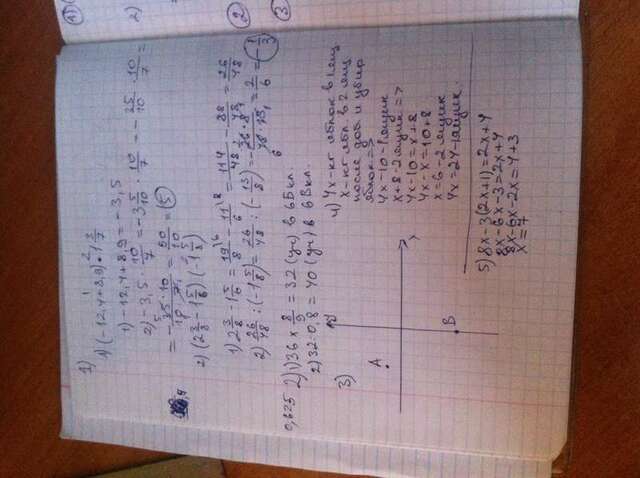 1)
1) (-12,4+8,9)·1 3/7
1) -12,4+8,9 = -3,5
2) -3,5 · 10/7 = -3 5/10 · 10/7 = -35/10 · 10/7 =
= -35·10/10·7 = 50/10 = 5
2) (2 3/8 - 1 5/6) (-1 5/8)
1) 2 3/8 - 1 5/6 = 19/8 - 11/6 = 114/48 - 88/48 = 26/48
2) 26/48 : (-1 5/8) = 26/48 : (-13/8) = -26·8/48·13 = 2/6 = -1/3
0,625
2) 1) 36 × 8/9 = 32 (уч) в 6Б кл.
2) 32:0,8 = 40 (уч) в 6В кл.
3)
y
A
x
B
4) 4x-кг яблок в 1 ящ
x-кг ябл. в 2 ящ
после доб. и убир
яблок =>
4x-10-1 ящик
x+8-2 ящик =>
4x-10=x+8
4x-x=10+8
x=6-2 ящик
4x=24-1 ящик.
5) 8x-3(2x+1)=2x+4
8x-6x-3=2x+4
8x-6x-2x=4+3
x=7
1)
2)
2
3